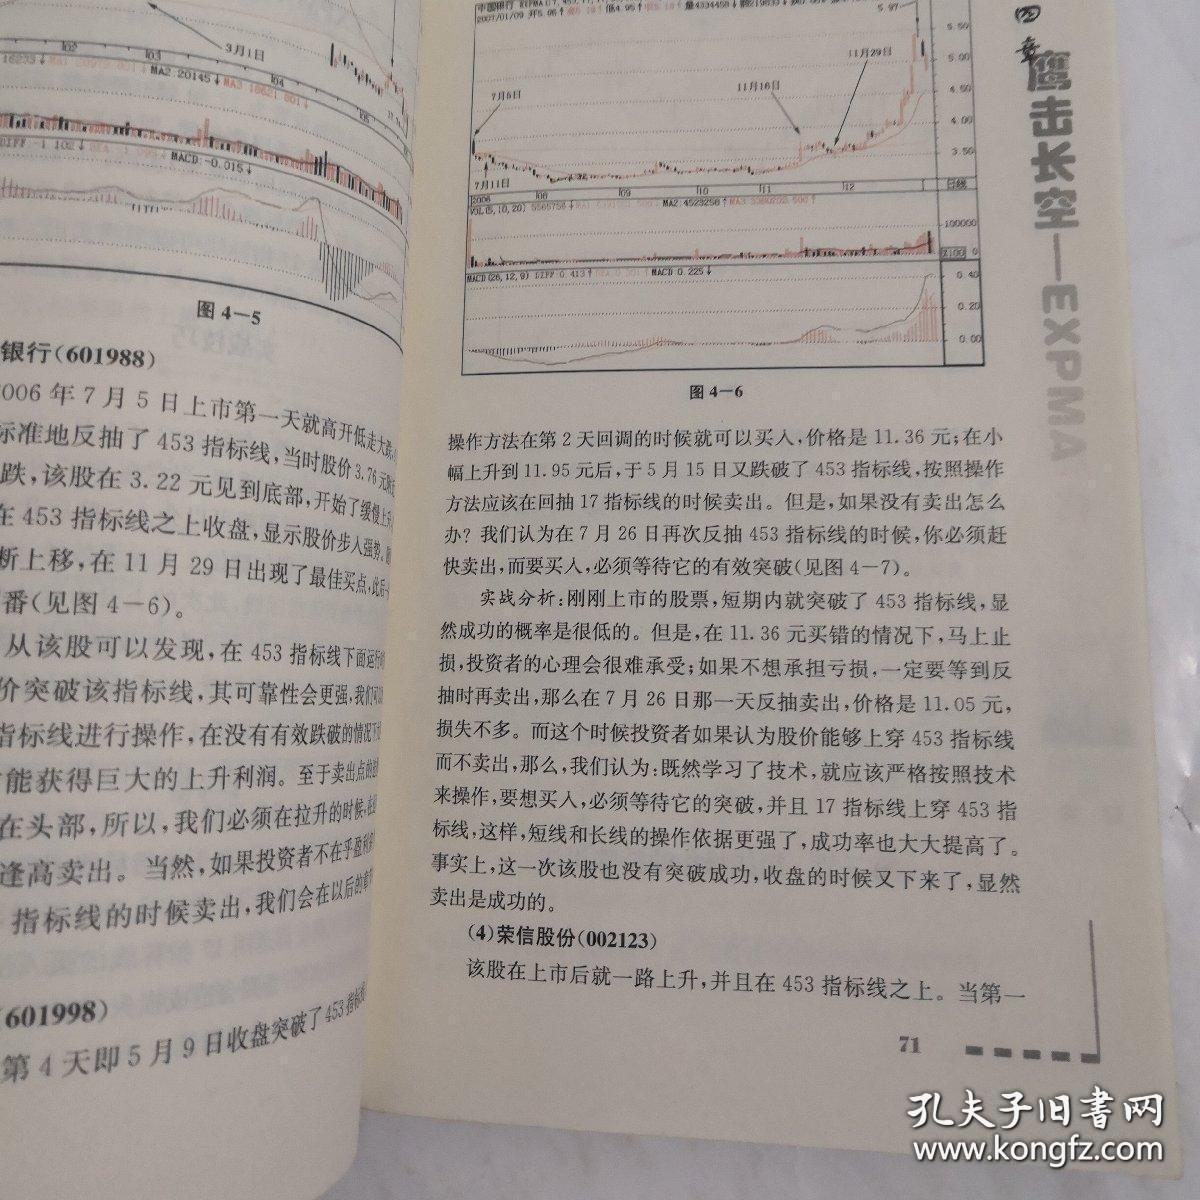 3月1日
MA2 20145↓
MACD -0.015↓
图 4－5
银行(601988)
006 年 7 月 5 日上市第一天就高开低走大跌
标准地反抽了 453 指标线,当时股价 3.76 元
跌,该股在 3.22 元见到底部,开始了缓慢上升
在 453 指标线之上收盘,显示股价步入强势。
断上移,在 11 月 29 日出现了最佳买点,此后
番(见图 4－6)。
从该股可以发现,在 453 指标线下面运行
价突破该指标线,其可靠性会更强,我们可以
指标线进行操作,在没有有效跌破的情况下
能获得巨大的上升利润。至于卖出点的
在头部,所以,我们必须在拉升的时候,
逢高卖出。当然,如果投资者不在乎盈利
指标线的时候卖出,我们会在以后的章
(601998)
第 4 天即 5 月 9 日收盘突破了 453 指标
四章
鹰击长空—EXPMA
5.97
11月29日
11月16日
7月5日
7月11日
5.50
5.00
4.50
4.00
3.50
2006
08
09
10
11
12
日线
VOL(5,10,20)
MA2 4523258↑
100000
X100
0
MACD(26,12,9) DIFF 0.413↑
MACD 0.225↓
0.40
0.20
0.00
图 4－6
操作方法在第 2 天回调的时候就可以买入,价格是 11.36 元;在小
幅上升到 11.95 元后,于 5 月 15 日又跌破了 453 指标线,按照操作
方法应该在回抽 17 指标线的时候卖出。但是,如果没有卖出怎么
办？我们认为在 7 月 26 日再次反抽 453 指标线的时候,你必须赶
快卖出,而要买入,必须等待它的有效突破(见图 4－7)。
实战分析:刚刚上市的股票,短期内就突破了 453 指标线,显
然成功的概率是很低的。但是,在 11.36 元买错的情况下,马上止
损,投资者的心理会很难承受;如果不想承担亏损,一定要等到反
抽时再卖出,那么在 7 月 26 日那一天反抽卖出,价格是 11.05 元,
损失不多。而这个时候投资者如果认为股价能够上穿 453 指标线
而不卖出,那么,我们认为:既然学习了技术,就应该严格按照技术
来操作,要想买入,必须等待它的突破,并且 17 指标线上穿 453 指
标线,这样,短线和长线的操作依据更强了,成功率也大大提高了。
事实上,这一次该股也没有突破成功,收盘的时候又下来了,显然
卖出是成功的。
(4)荣信股份(002123)
该股在上市后就一路上升,并且在 453 指标线之上。当第一
71
孔夫子旧书网
www.kongfz.com